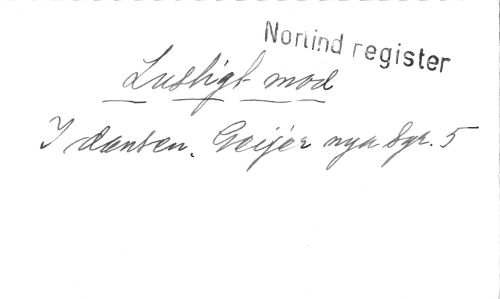 Norlind register
Lustigt mod
I dansen. Geijer nya Syr. 5